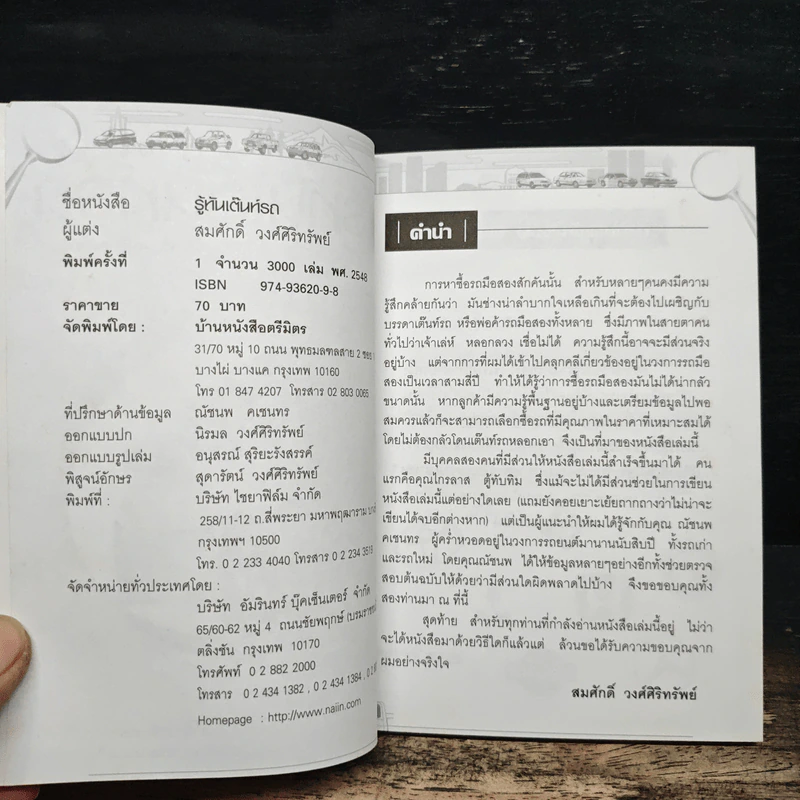 ชื่อหนังสือ รู้ทันเต็นท์รถ
ผู้แต่ง สมศักดิ์ วงศ์ศิริทรัพย์
พิมพ์ครั้งที่ 1 จำนวน 3000 เล่ม พศ. 2548
ISBN 974-93620-9-8
ราคาขาย 70 บาท
จัดพิมพ์โดย : บ้านหนังสือตรีมิตร
31/70 หมู่ 10 ถนน พุทธมลฑลสาย 2 ซอย
บางไผ่ บางแค กรุงเทพ 10160
โทร 01 847 4207 โทรสาร 02 803 0065
ที่ปรึกษาด้านข้อมูล ณัชนพ คเชนทร
ออกแบบปก นิรมล วงศ์ศิริทรัพย์
ออกแบบรูปเล่ม อนุสรณ์ สุริยะรังสรรค์
พิสูจน์อักษร สุดารัตน์ วงศ์ศิริทรัพย์
พิมพ์ที่ : บริษัท ไชยาฟิล์ม จำกัด
258/11-12 ถ.สี่พระยา มหาพฤฒาราม
กรุงเทพฯ 10500
โทร. 0 2 233 4040 โทรสาร 0 2 234 3518
จัดจำหน่ายทั่วประเทศโดย :
บริษัท อัมรินทร์ บุ๊คเซ็นเตอร์ จำกัด
65/60-62 หมู่ 4 ถนนชัยพฤกษ์ (บรมราชชนนี
ตลิ่งชัน กรุงเทพ 10170
โทรศัพท์ 0 2 882 2000
โทรสาร 0 2 434 1382 , 0 2 434 1384 , 0 2
Homepage : http://www.naiin.com
คำนำ
การหาซื้อรถมือสองสักคันนั้น สำหรับหลายๆคนคงมีความ
รู้สึกคล้ายกันว่า มันช่างน่าลำบากใจเหลือเกินที่จะต้องไปเผชิญกับ
บรรดาเต็นท์รถ หรือพ่อค้ารถมือสองทั้งหลาย ซึ่งมีภาพในสายตาคน
ทั่วไปว่าเจ้าเล่ห์ หลอกลวง เชื่อไม่ได้ ความรู้สึกนี้อาจจะมีส่วนจริง
อยู่บ้าง แต่จากการที่ผมได้เข้าไปคลุกคลีเกี่ยวข้องอยู่ในวงการรถมือ
สองเป็นเวลาสามสี่ปี ทำให้ได้รู้ว่าการซื้อรถมือสองมันไม่ได้น่ากลัว
ขนาดนั้น หากลูกค้ามีความรู้พื้นฐานอยู่บ้างและเตรียมข้อมูลไปพอ
สมควรแล้วก็จะสามารถเลือกซื้อรถที่มีคุณภาพในราคาที่เหมาะสมได้
โดยไม่ต้องกลัวโดนเต็นท์รถหลอกเอา จึงเป็นที่มาของหนังสือเล่มนี้
มีบุคคลสองคนที่มีส่วนให้หนังสือเล่มนี้สำเร็จขึ้นมาได้ คน
แรกคือคุณไกรลาส ตู้ทับทิม ซึ่งแม้จะไม่ได้มีส่วนช่วยในการเขียน
หนังสือเล่มนี้แต่อย่างใดเลย (แถมยังคอยเยาะเย้ยถากถางว่าไม่น่าจะ
เขียนได้จบอีกต่างหาก) แต่เป็นผู้แนะนำให้ผมได้รู้จักกับคุณ ณัชนพ
คเชนทร ผู้คร่ำหวอดอยู่ในวงการรถยนต์มานานนับสิบปี ทั้งรถเก่า
และรถใหม่ โดยคุณณัชนพ ได้ให้ข้อมูลหลายๆอย่างอีกทั้งช่วยตรวจ
สอบต้นฉบับให้ด้วยว่ามีส่วนใดผิดพลาดไปบ้าง จึงขอขอบคุณทั้ง
สองท่านมา ณ ที่นี้
สุดท้าย สำหรับทุกท่านที่กำลังอ่านหนังสือเล่มนี้อยู่ ไม่ว่า
จะได้หนังสือมาด้วยวิธีใดก็แล้วแต่ ล้วนขอได้รับความขอบคุณจาก
ผมอย่างจริงใจ
สมศักดิ์ วงศ์ศิริทรัพย์